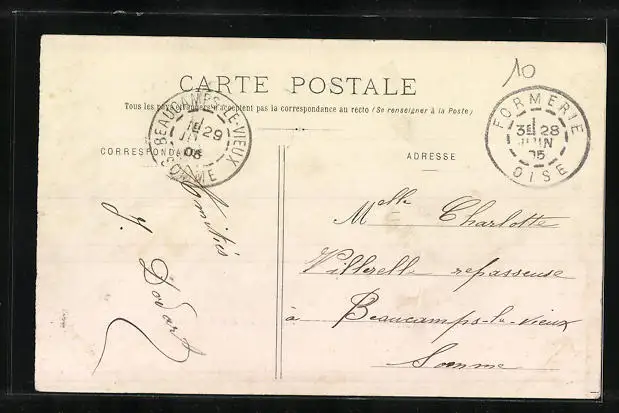 10
CARTE POSTALE
Tous les pays étrangers n'acceptent pas la correspondance au recto (Se renseigner à la Poste)
BEAUCAMPS-LE-VIEUX
29
JUIN
05
SOMME
FORMERIE
3E 28
JUIN
05
OISE
CORRESPONDANCE
ADRESSE
Amitiés
Y. Dovart
Melle Charlotte
Villerelle repasseuse
à Beaucamps-le-Vieux
Somme